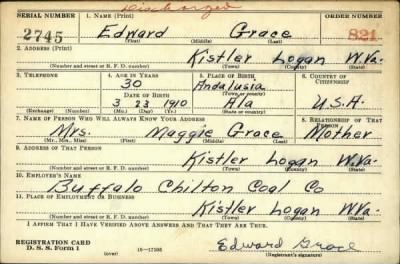 Discharged
SERIAL NUMBER 1. NAME (Print) ORDER NUMBER
2745 Edward Grace 821
(First) (Middle) (Last)
2. ADDRESS (Print)
Kistler Logan W.Va.
(Number and street or R. F. D. number) (Town) (County) (State)
3. TELEPHONE 4. AGE IN YEARS 5. PLACE OF BIRTH 6. COUNTRY OF CITIZENSHIP
30 Andalusia
DATE OF BIRTH (Town or county)
3 23 1910 Ala U.S.A.
(Exchange) (Number) (Mo.) (Day) (Yr.) (State or country)
7. NAME OF PERSON WHO WILL ALWAYS KNOW YOUR ADDRESS 8. RELATIONSHIP OF THAT PERSON
Mrs. Maggie Grace Mother
(Mr., Mrs., Miss) (First) (Middle) (Last)
9. ADDRESS OF THAT PERSON
Kistler Logan W.Va.
(Number and street or R. F. D. number) (Town) (County) (State)
10. EMPLOYER'S NAME
Buffalo Chilton Coal Co
11. PLACE OF EMPLOYMENT OR BUSINESS
Kistler Logan W.Va.
(Number and street or R. F. D. number) (Town) (County) (State)
I AFFIRM THAT I HAVE VERIFIED ABOVE ANSWERS AND THAT THEY ARE TRUE.
REGISTRATION CARD
D. S. S. Form 1 (over) Edward Grace
(Registrant's signature)